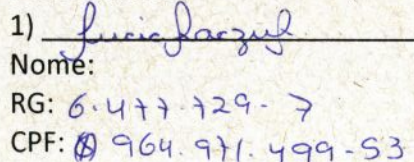 1)
Nome:
RG: 6.477.729-7
CPF: 964.971.499-53